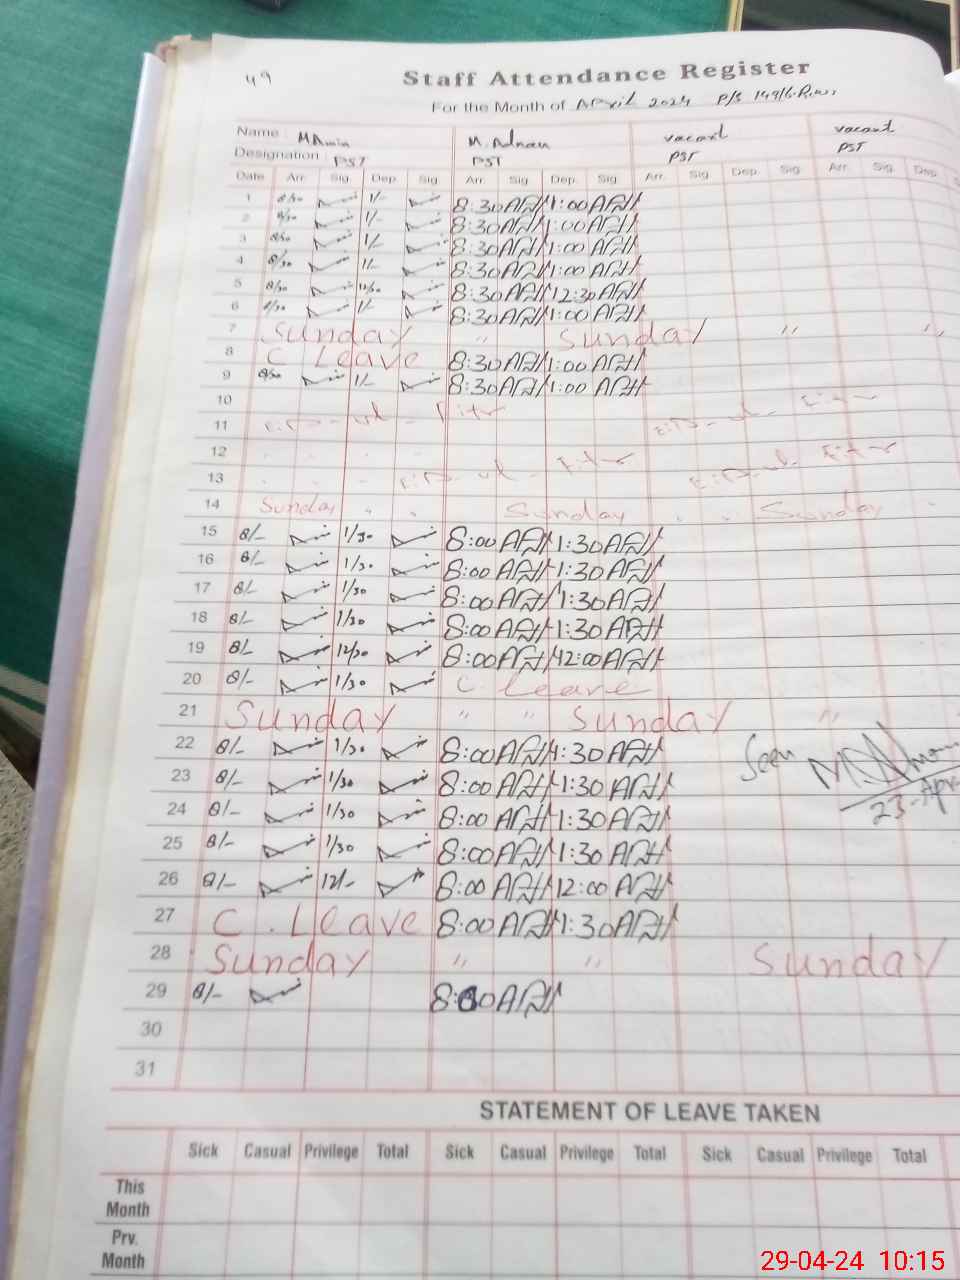 49
Staff Attendance Register
For the Month of April 2024 P/S 149/6.R
Name : M Amin M. Adnan vacant vacant
Designation : PST PST PST PST
Date Arr. Sig. Dep. Sig Arr. Sig Dep. Sig. Arr. Sig Dep. Sig Arr. Sig. Dep.
1 8/30 1/- 8:30 1:00
2 8/30 1/- 8:30 1:00
3 8/30 1/- 8:30 1:00
4 8/30 1/- 8:30 1:00
5 8/30 12/30 8:30 12:30
6 8/30 1/- 8:30 1:00
7 Sunday " Sunday " "
8 C. Leave 8:30 1:00
9 8/30 1/- 8:30 1:00
10
11 Eid-ul-Fitr Eid-ul-Fitr
12
13 Eid-ul-Fitr Eid-ul-Fitr
14 Sunday " " Sunday " " Sunday
15 8/- 1/30 8:00 1:30
16 8/- 1/30 8:00 1:30
17 8/- 1/30 8:00 1:30
18 8/- 1/30 8:00 1:30
19 8/- 12/30 8:00 12:00
20 8/- 1/30 C. Leave
21 Sunday " " Sunday "
22 8/- 1/30 8:00 1:30 Seen
23 8/- 1/30 8:00 1:30
24 8/- 1/30 8:00 1:30 23-Apr-
25 8/- 1/30 8:00 1:30
26 8/- 12/- 8:00 12:00
27 C. Leave 8:00 1:30
28 Sunday " " Sunday
29 8/- 8:00
30
31
STATEMENT OF LEAVE TAKEN
Sick Casual Privilege Total Sick Casual Privilege Total Sick Casual Privilege Total
This
Month
Prv.
Month
29-04-24 10:15